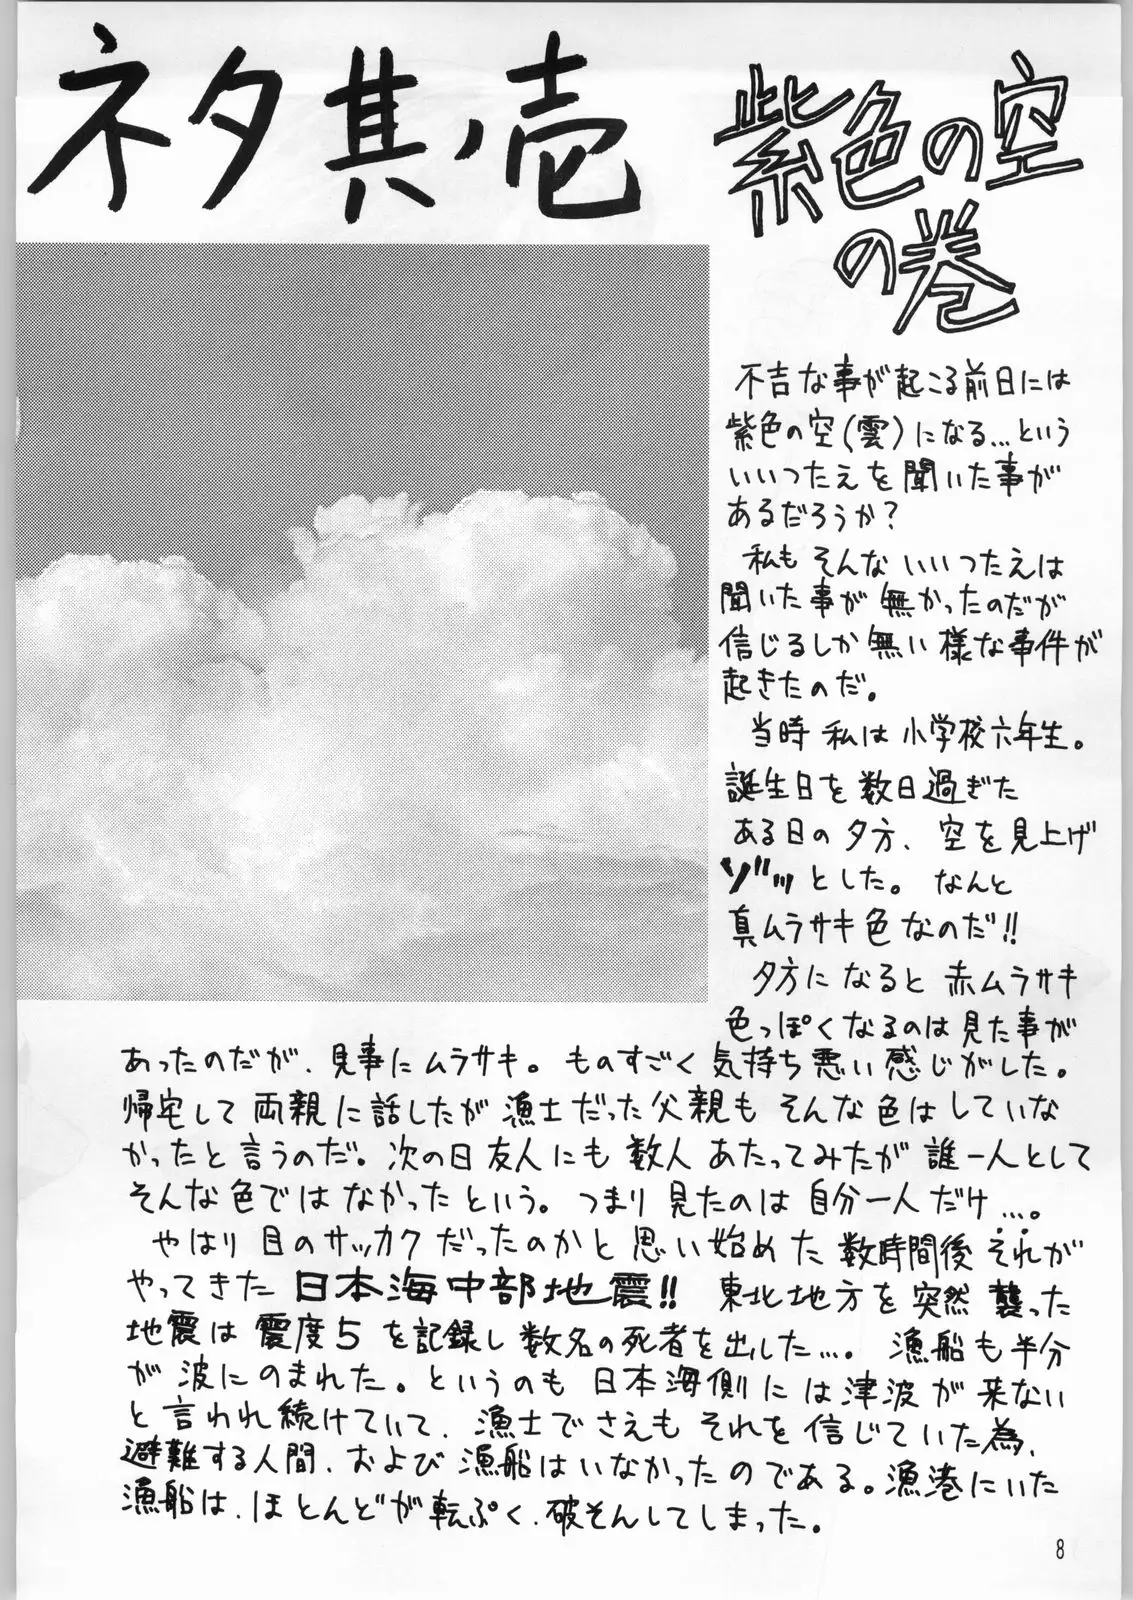 ネタ其ノ壱
紫色の空
の巻
不吉な事が起こる前日には
紫色の空(雲)になる…という
いいつたえを聞いた事が
あるだろうか?
私もそんないいつたえは
聞いた事が無かったのだが
信じるしか無い様な事件が
起きたのだ。
当時私は小学校六年生。
誕生日を数日過ぎた
ある日の夕方、空を見上げ
ゾッとした。なんと
真ムラサキ色なのだ!!
夕方になると赤ムラサキ
色っぽくなるのは見た事が
あったのだが、見事にムラサキ。ものすごく気持ち悪い感じがした。
帰宅して両親に話したが漁士だった父親もそんな色はしていな
かったと言うのだ。次の日友人にも数人あたってみたが誰一人として
そんな色ではなかったという。つまり見たのは自分一人だけ…。
やはり目のサッカクだったのかと思い始めた数時間後それが
やってきた日本海中部地震!!東北地方を突然襲った
地震は震度5を記録し数名の死者を出した…。漁船も半分
が波にのまれた。というのも日本海側には津波が来ない
と言われ続けていて、漁士でさえもそれを信じていた為、
避難する人間、および漁船はいなかったのである。漁港にいた
漁船は、ほとんどが転ぷく、破そんしてしまった。
8